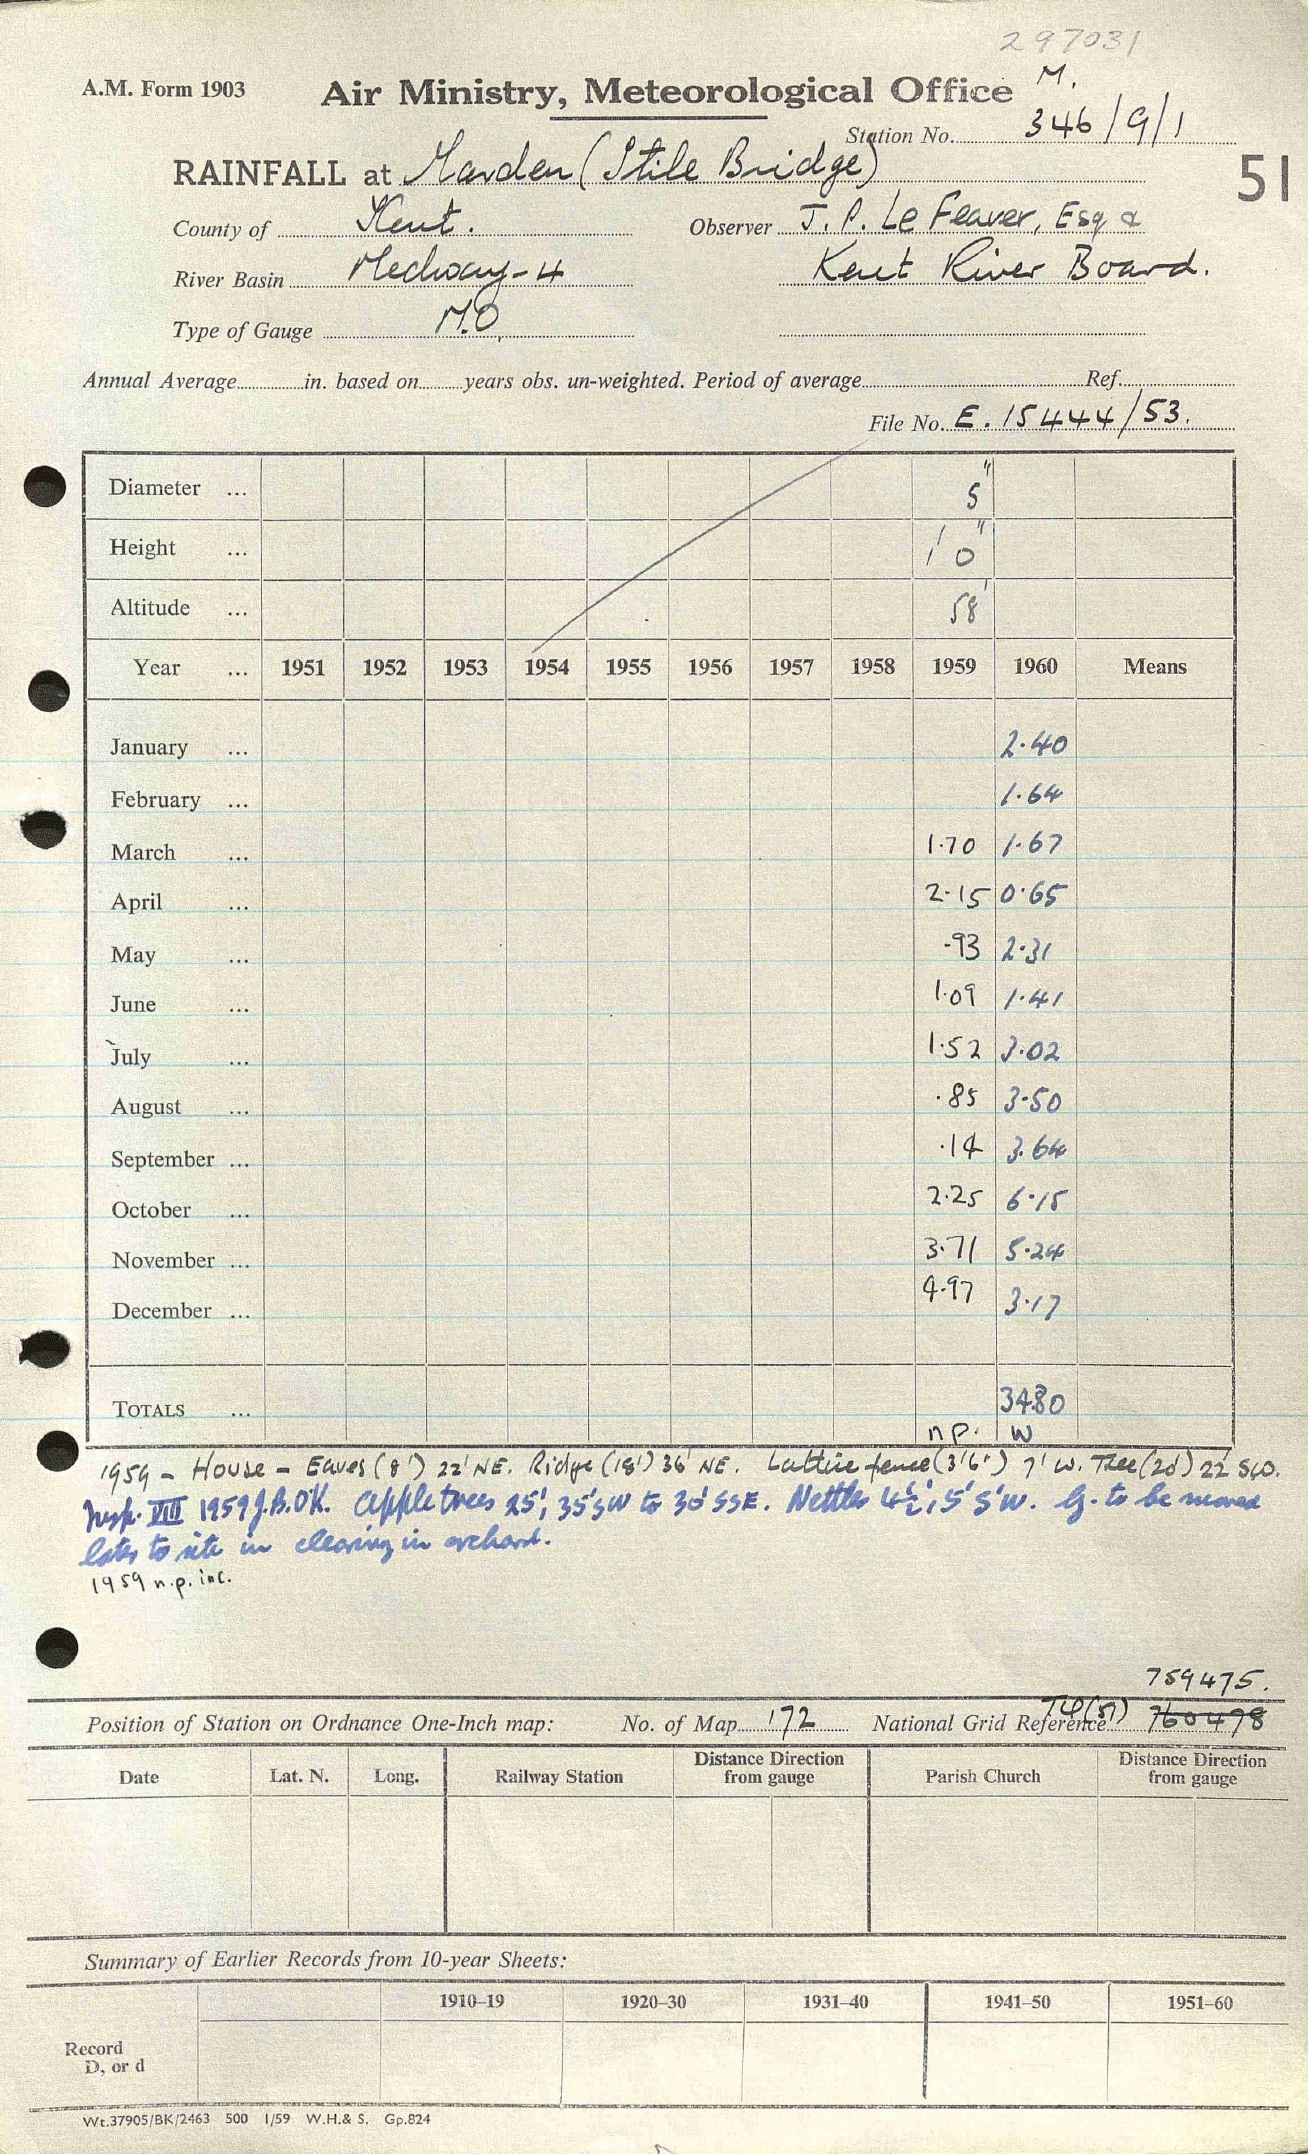 297031
A.M. Form 1903 Air Ministry, Meteorological Office M.
Station No. 346/9/1
RAINFALL at Marden (Stile Bridge) 51
County of Kent. Observer J. P. Le Feaver, Esq &
River Basin Medway-4 Kent River Board.
Type of Gauge M.O.
Annual Average in. based on years obs. un-weighted. Period of average Ref.
File No. E. 15444/53.
Diameter ... 5"
Height ... 1' 0"
Altitude ... 58'
Year ... 1951 1952 1953 1954 1955 1956 1957 1958 1959 1960 Means
January ... 2.40
February ... 1.64
March ... 1.70 1.67
April ... 2.15 0.65
May ... .93 2.31
June ... 1.09 1.41
July ... 1.52 3.02
August ... .85 3.50
September ... .14 3.64
October ... 2.25 6.15
November ... 3.71 5.24
December ... 4.97 3.17
TOTALS ... 34.80
n.p. W
1959 - House - Eaves (8') 22' NE. Ridge (18') 36' NE. Lattice fence (3'6") 7' W. Tree (20') 22' SW.
Insp. VIII 1959 J.B. OK. Apple trees 25', 35' SW to 30' SSE. Nettles 4½', 5' S'W. G. to be moved
later to site in clearing in orchard.
1959 n.p. inc.
759475.
Position of Station on Ordnance One-Inch map: No. of Map 172 National Grid Reference TQ(51) 760478
Date Lat. N. Long. Railway Station Distance Direction from gauge Parish Church Distance Direction from gauge
Summary of Earlier Records from 10-year Sheets:
1910–19 1920–30 1931–40 1941–50 1951–60
Record
D, or d
Wt.37905/BK/2463 500 1/59 W.H.& S. Gp.824